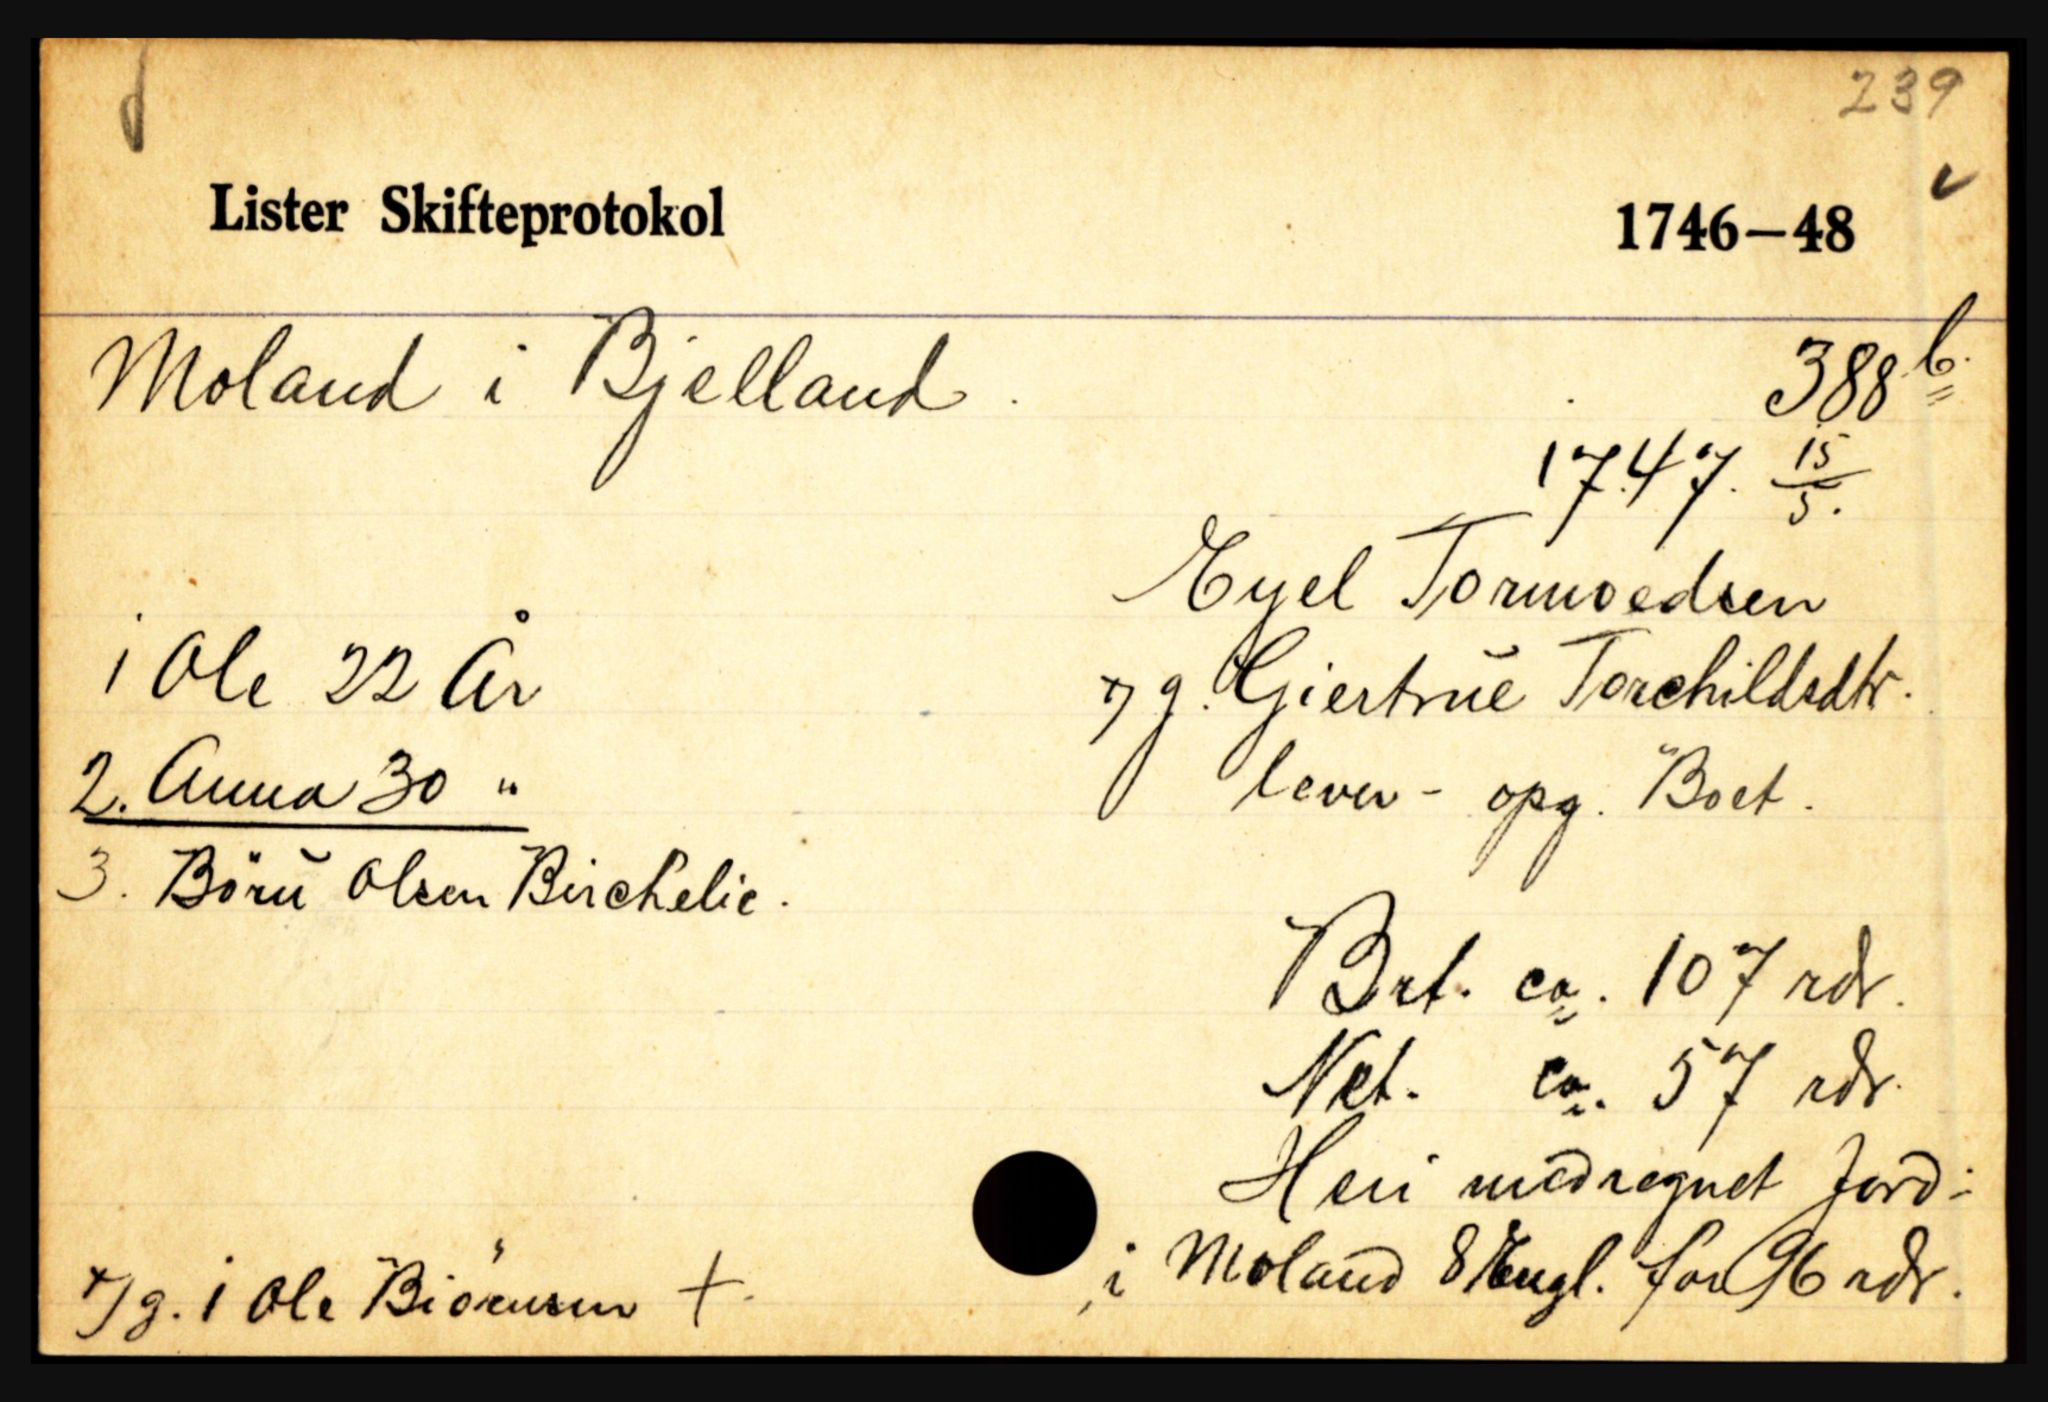 239
Lister Skifteprotokol 1746—48
Moland i Bjelland. 388 b.
1747. 15/5.
Eyel Tormoedsen
1 Ole 22 År
g. Giertrue Torchildsdtr.
2. Anna 30 "
lever - opg. Boet.
3. Börü Olsen Birchelie.
Brt. ca. 107 rdr.
Net. ca. 57 rdr.
Heri medregnet Jord
i Moland 8 Engl. for 96 rdr.
g. 1 Ole Biörnsen +.